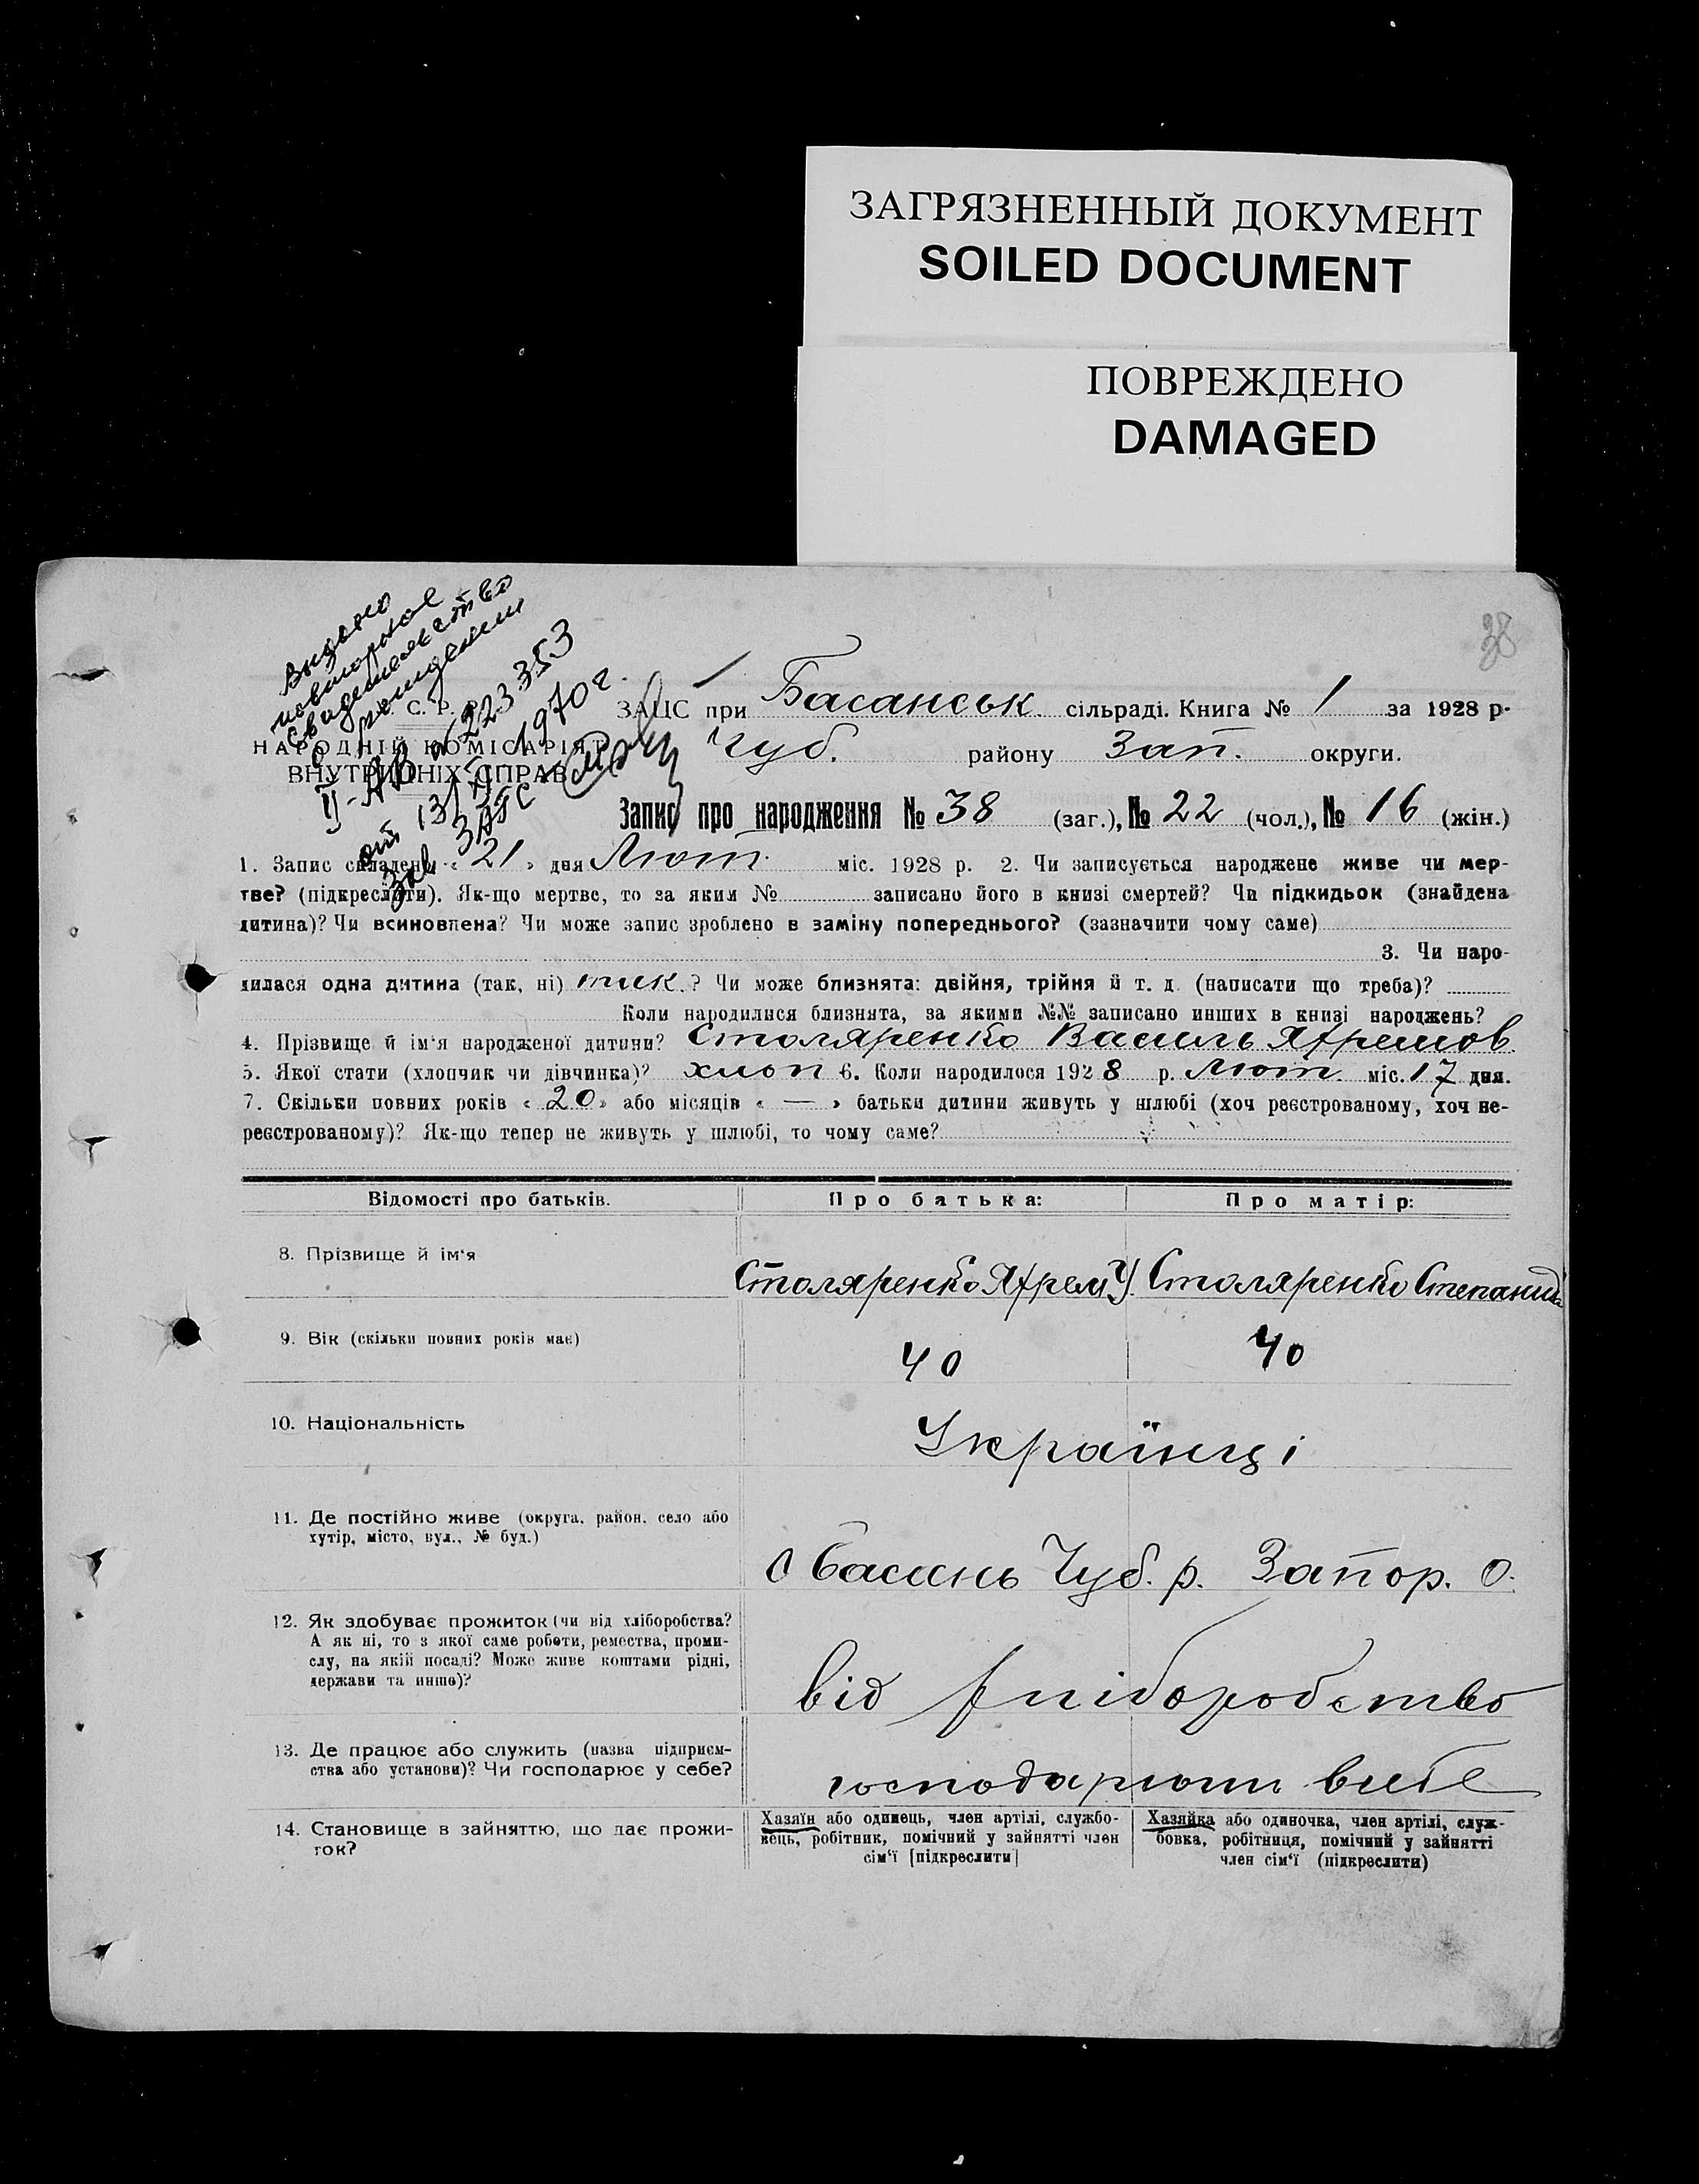 ЗАГРЯЗНЕННЫЙ ДОКУМЕНТ
SOILED DOCUMENT
ПОВРЕЖДЕНО
DAMAGED
38
Выдано
повторное
свидетельство
о рождении
№ 223353
1970 г.
С. Р. Р.
НАРОДНІЙ КОМІСАРІЯТ
ВНУТРИШНІХ СПРАВ
ЗАЦС при Басанськ. сільраді. Книга № 1 за 1928 р.
Чуб. району Зап. округи.
Запис про народження № 38 (заг.), № 22 (чол.), № 16 (жін.)
1. Запис складено « 21 » дня Лют. міс. 1928 р. 2. Чи записується народжене живе чи мер-
тве? (підкреслити). Як-що мертве, то за яким № записано його в книзі смертей? Чи підкидьок (знайдена
дитина)? Чи всиновлена? Чи може запис зроблено в заміну попереднього? (зазначити чому саме)
3. Чи наро-
дилася одна дитина (так, ні) так.? Чи може близнята: двійня, трійня й т. д. (написати що треба)?
Коли народилися близнята, за якими №№ записано инших в книзі народжень?
4. Прізвище й ім'я народженої дитини? Столяренко Василь Яфремов.
5. Якої стати (хлопчик чи дівчинка)? хлоп 6. Коли народилося 1928 р. Лют. міс. 17 дня.
7. Скільки повних років « 20 » або місяців « — » батьки дитини живуть у шлюбі (хоч реєстрованому, хоч не-
реєстрованому)? Як-що тепер не живуть у шлюбі, то чому саме?
Відомості про батьків. Про батька: Про матір:
8. Прізвище й ім'я Столяренко Яфрем У. Столяренко Степанида
9. Вік (скільки повних років має) 40 40
10. Національність Українці
11. Де постійно живе (округа, район, село або
хутір, місто, вул., № буд.)
с Басань Чуб. р. Запор. о.
12. Як здобуває прожиток (чи від хліборобства?
А як ні, то з якої саме роботи, ремества, проми-
слу, на якій посаді? Може живе коштами рідні,
держави та инше)?
від хліборобство
13. Де працює або служить (назва підприєм-
ства або установи)? Чи господарює у себе?
господарюют всебе
14. Становище в зайняттю, що дає прожи-
ток?
Хазяїн або одинець, член артілі, службо-
вець, робітник, помічний у зайнятті член
сім'ї [підкреслити]
Хазяйка або одиночка, член артілі, служ-
бовка, робітниця, помічний у зайнятті
член сім'ї (підкреслити)